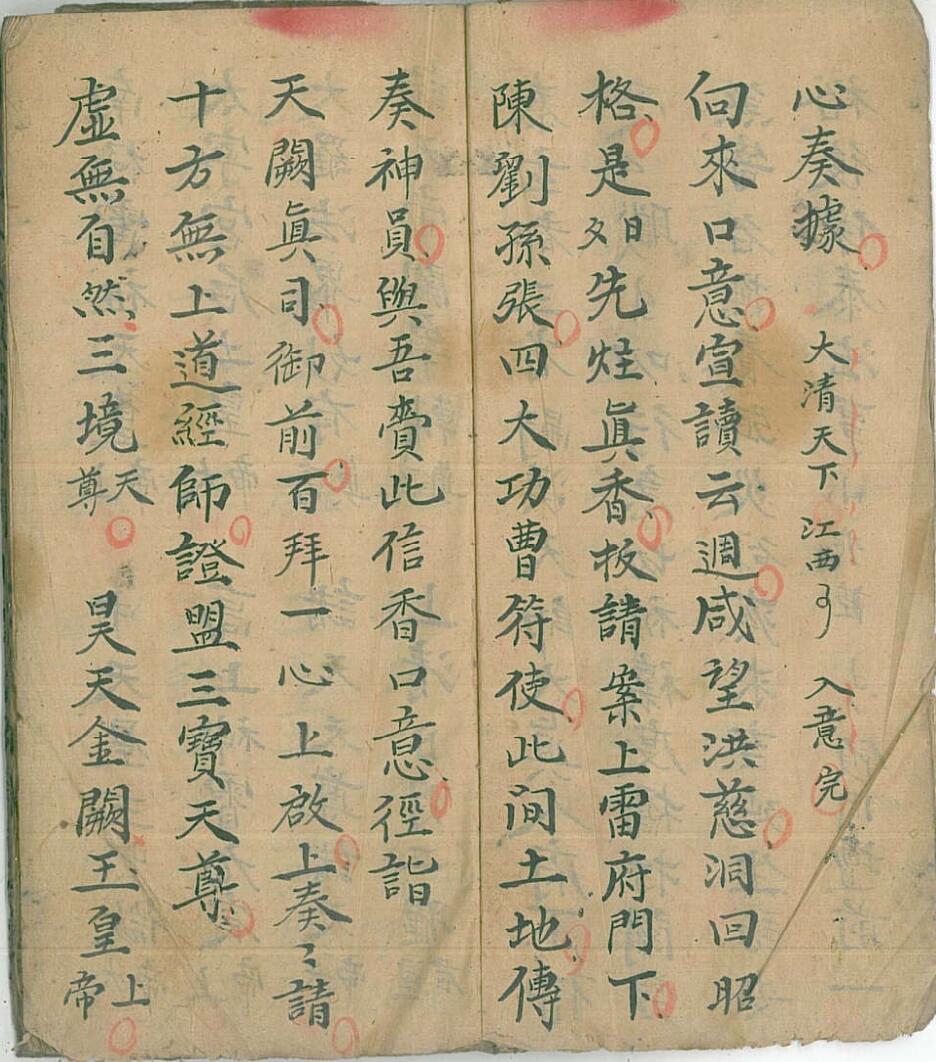 心奏據 大清天下 江西 入意完
向來口意宣讀云週咸望洪慈洞回昭
格是日先炷真香板請案上雷府門下
陳劉孫張四大功曹符使此间土地傳
奏神員與吾賫此信香口意徑詣
天闕眞司御前百拜一心上啟上奏〻請
十方無上道經師證盟三寶天尊
虛無自然三境天尊 昊天金闕王皇上帝